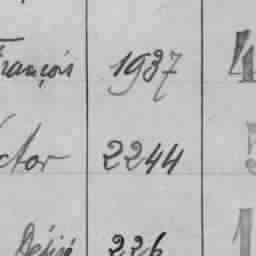 François 1937 4
ctor 2244
Désiré 226 1